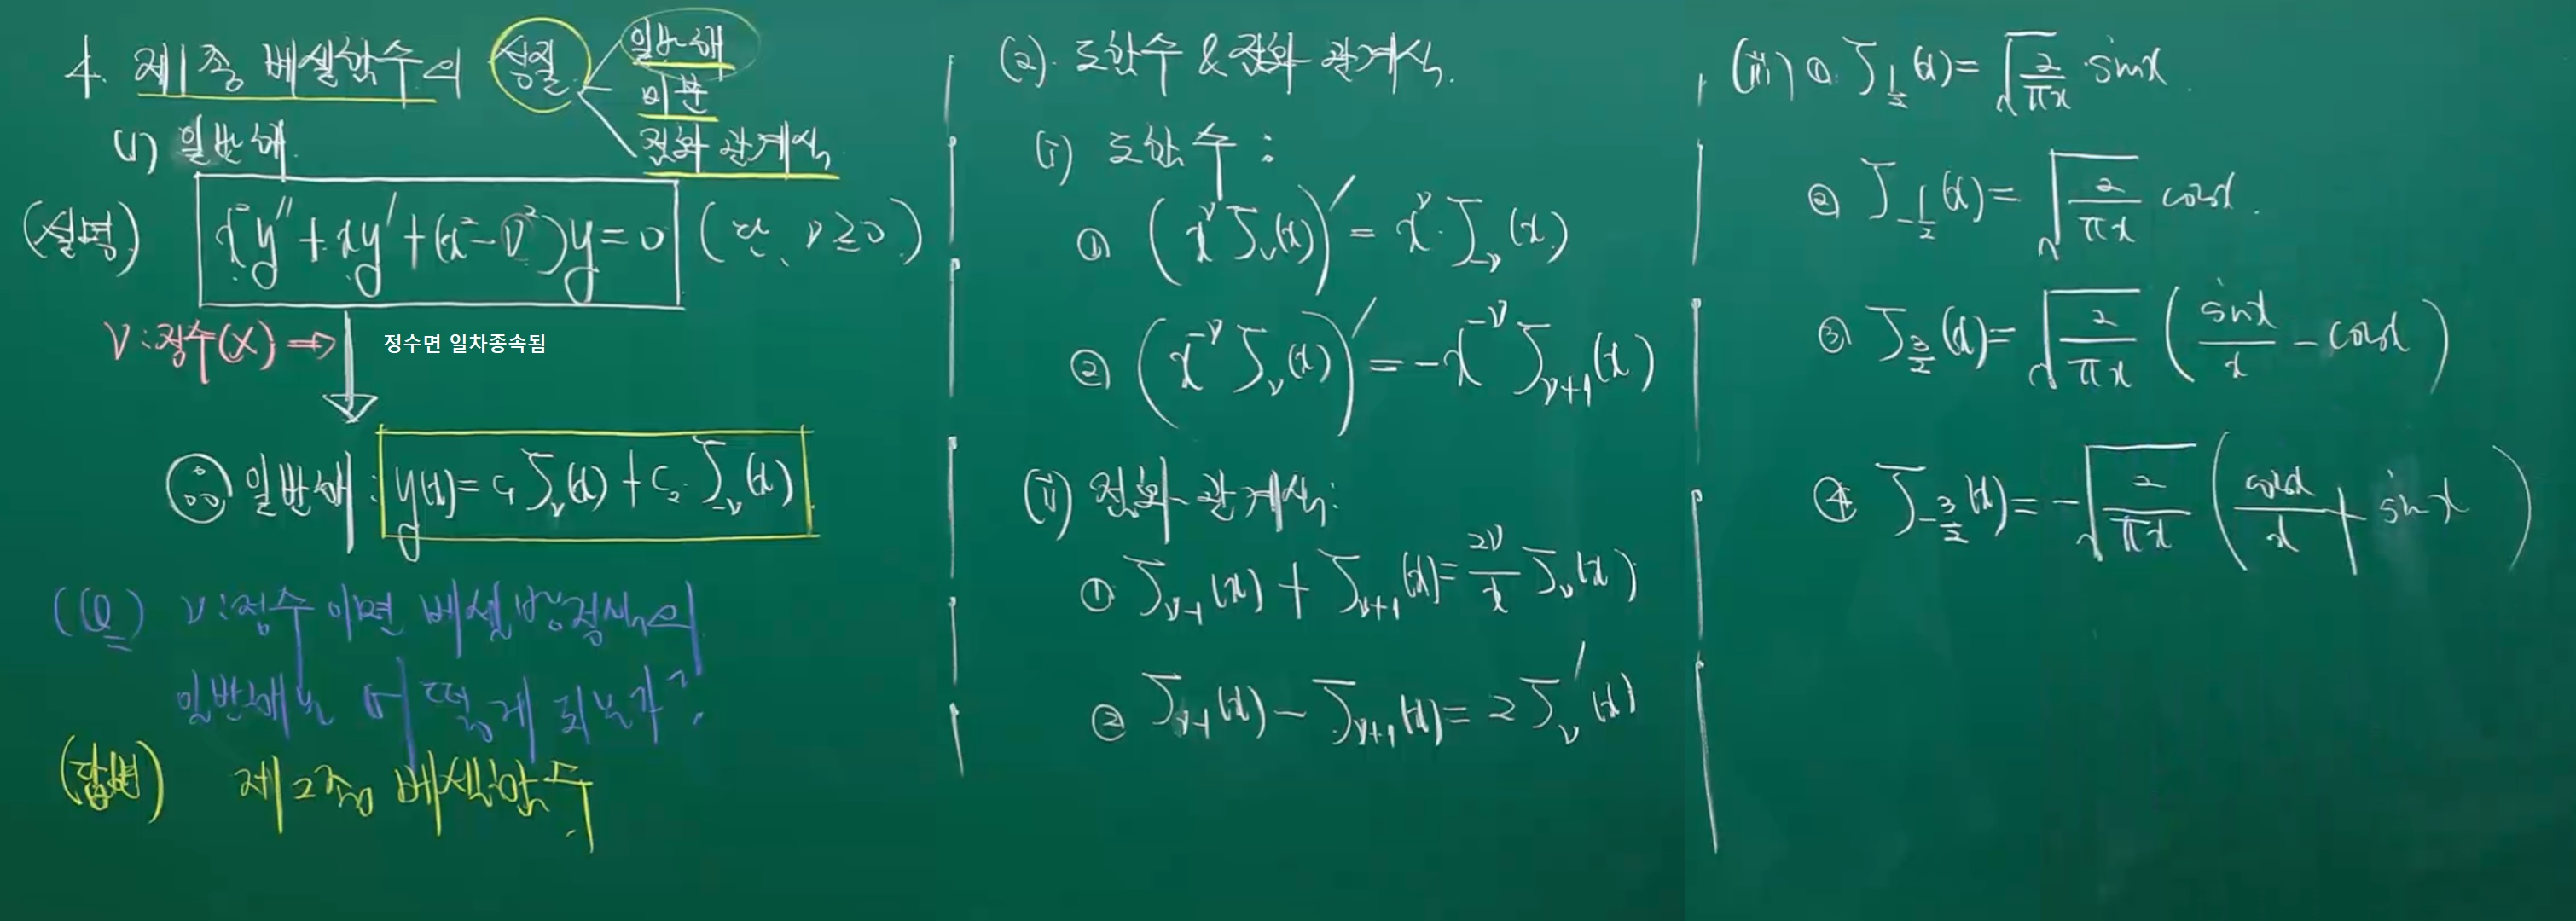 4. 제1종 베셀함수의 성질
일반해
미분
점화 관계식
(1) 일반해
(설명) x²y″ + xy′ + (x² − ν²)y = 0 (단, ν ≥ 0)
ν : 정수(X) ⇒ 정수면 일차종속됨
∴ 일반해 : y(x) = c₁ J_ν(x) + c₂ · J_{-ν}(x)
(Q) ν : 정수이면 베셀방정식의
일반해는 어떻게 되는가?
(답변) 제2종 베셀함수.
(2). 도함수 & 점화 관계식.
(i) 도함수 :
① (x^ν J_ν(x))′ = x^ν · J_{-ν}(x)
② (x^{-ν} J_ν(x))′ = −x^{-ν} J_{ν+1}(x)
(ii) 점화 관계식:
① J_{ν-1}(x) + J_{ν+1}(x) = 2ν/x J_ν(x)
② J_{ν-1}(x) − J_{ν+1}(x) = 2 J_ν′(x)
(iii) ① J_{1/2}(x) = √(2/(πx)) · sinx.
② J_{-1/2}(x) = √(2/(πx)) cosx.
③ J_{3/2}(x) = √(2/(πx)) (sinx/x − cosx)
④ J_{-3/2}(x) = −√(2/(πx)) (cosx/x + sinx)